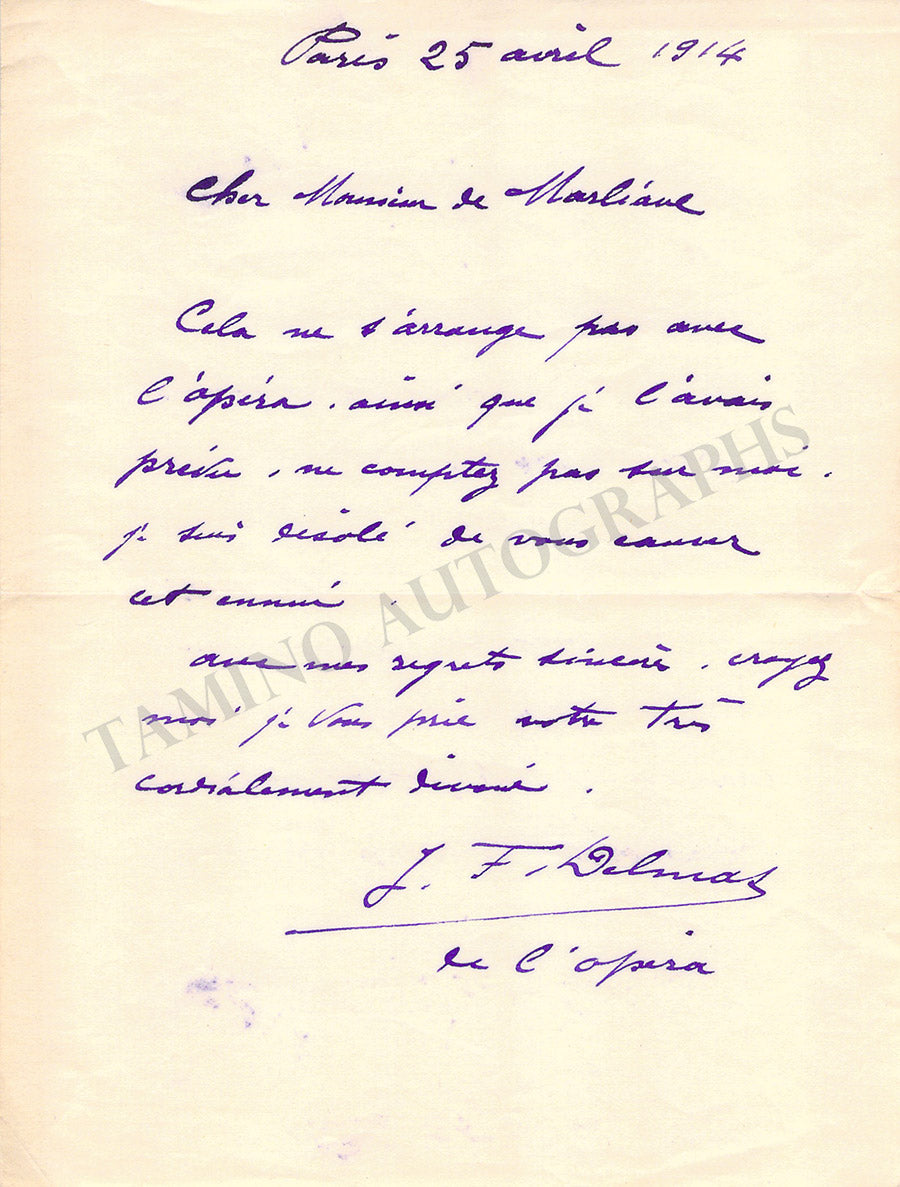 Paris 25 avril 1914
Cher Monsieur de Marliave
Cela ne s'arrange pas avec
l'opéra. ainsi que je l'avais
prévu, ne comptez pas sur moi.
je suis désolé de vous causer
cet ennui.
avec mes regrets sincères, croyez
moi je vous prie votre très
cordialement dévoué.
J. F. Delmas
de l'opéra
TAMINO AUTOGRAPHS